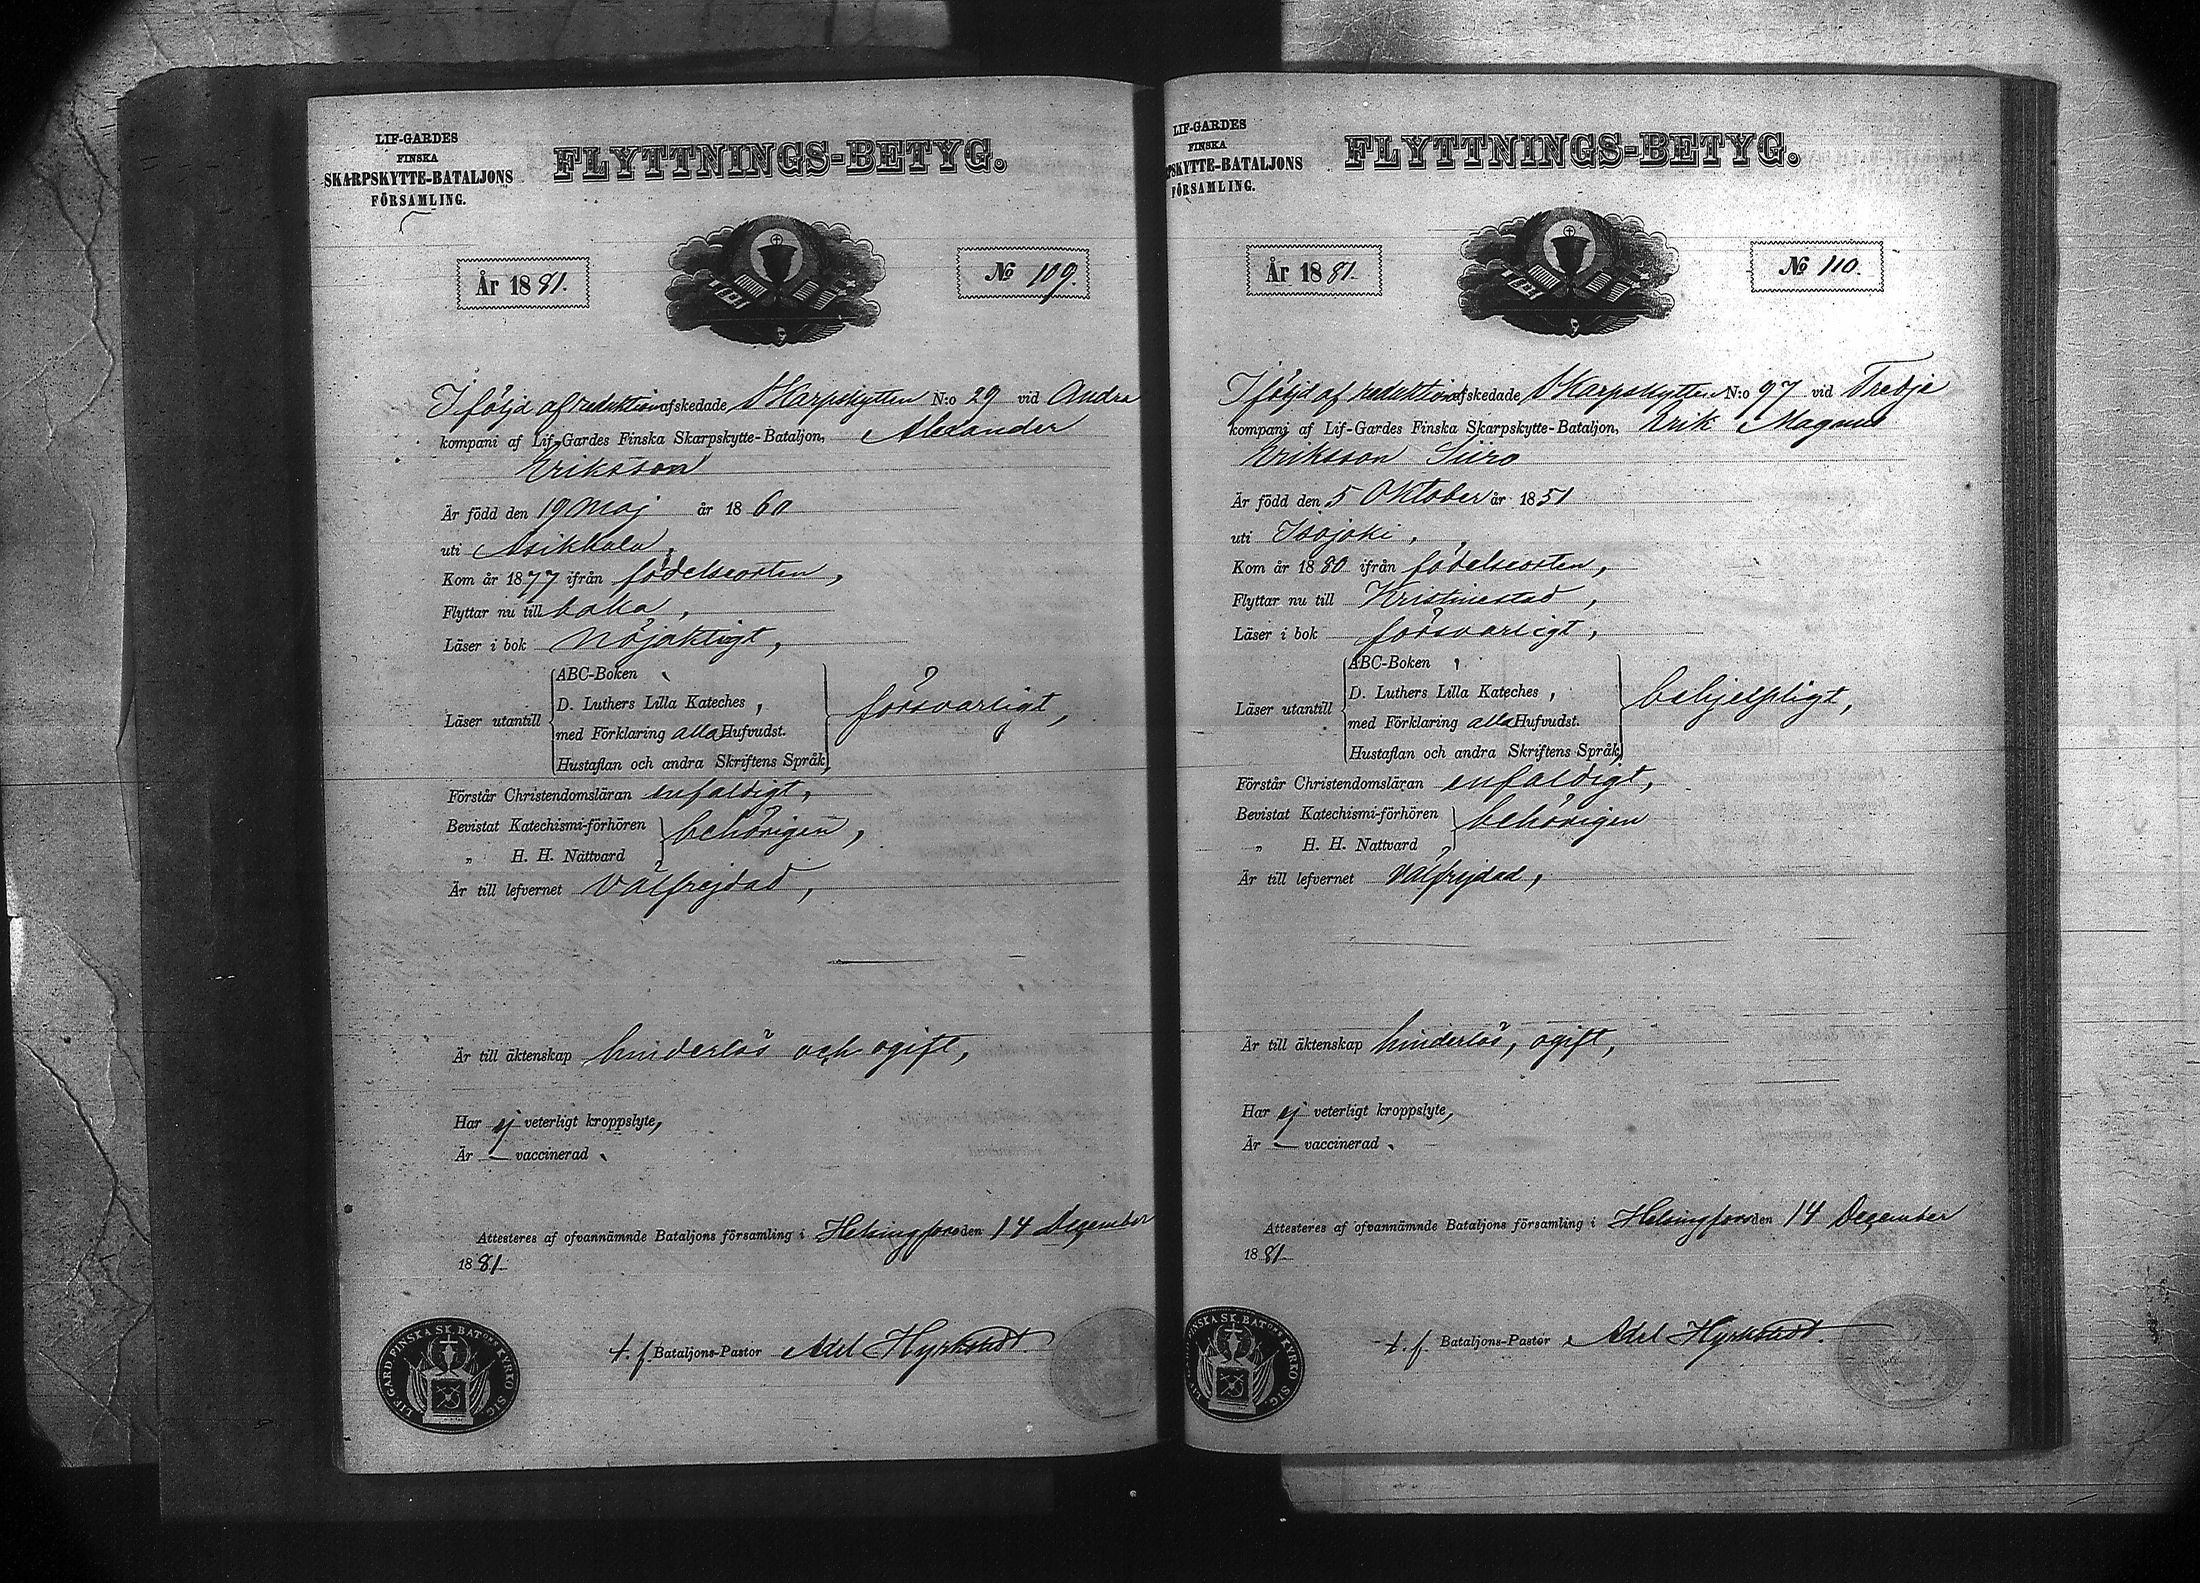 LIF-GARDES
FINSKA
SKARPSKYTTE-BATALJONS
FÖRSAMLING.
FLYTTNINGS-BETYG.
År 1881.
№ 109.
I följd af reduktion afskedade Skarpskytten N:o 29 vid Andra
kompani af Lif-Gardes Finska Skarpskytte-Bataljon, Alexander
Eriksson
Är född den 19 Maj år 1860
uti Asikkala,
Kom år 1877 ifrån födelseorten,
Flyttar nu till baka,
Läser i bok nöjaktigt,
Läser utantill
ABC-Boken,
D. Luthers Lilla Kateches,
med Förklaring alla Hufvudst.
Hustaflan och andra Skriftens Språk,
försvarligt,
Förstår Christendomsläran enfaldigt,
Bevistat Katechismi-förhören
„ H. H. Nattvard
behörigen,
Är till lefvernet välfrejdad,
Är till äktenskap hinderlös och ogift,
Har ej veterligt kroppslyte,
Är — vaccinerad.
Attesteres af ofvannämnde Bataljons församling i Helsingfors den 14 December
1881.
t. f. Bataljons-Pastor Axel Hyrkstedt.
LIF. GARD. FINSKA SK. BATONS KYRKO SIG.
LIF-GARDES
FINSKA
PSKYTTE-BATALJONS
FÖRSAMLING.
FLYTTNINGS-BETYG.
År 1881.
№ 110.
I följd af reduktion afskedade Skarpskytten N:o 97 vid Tredje
kompani af Lif-Gardes Finska Skarpskytte-Bataljon, Erik Magnus
Eriksson Siiro
Är född den 5 Oktober år 1851
uti Isojoki,
Kom år 1880 ifrån födelseorten,
Flyttar nu till Kristinestad,
Läser i bok försvarligt,
Läser utantill
ABC-Boken,
D. Luthers Lilla Kateches,
med Förklaring alla Hufvudst.
Hustaflan och andra Skriftens Språk,
behjelpligt,
Förstår Christendomsläran enfaldigt,
Bevistat Katechismi-förhören
„ H. H. Nattvard
behörigen
Är till lefvernet välfrejdad,
Är till äktenskap hinderlös, ogift,
Har ej veterligt kroppslyte,
Är — vaccinerad.
Attesteres af ofvannämnde Bataljons församling i Helsingfors den 14 December
1881.
t. f. Bataljons-Pastor Axel Hyrkstedt.
FINSKA SK. BATONS KYRKO SIG.